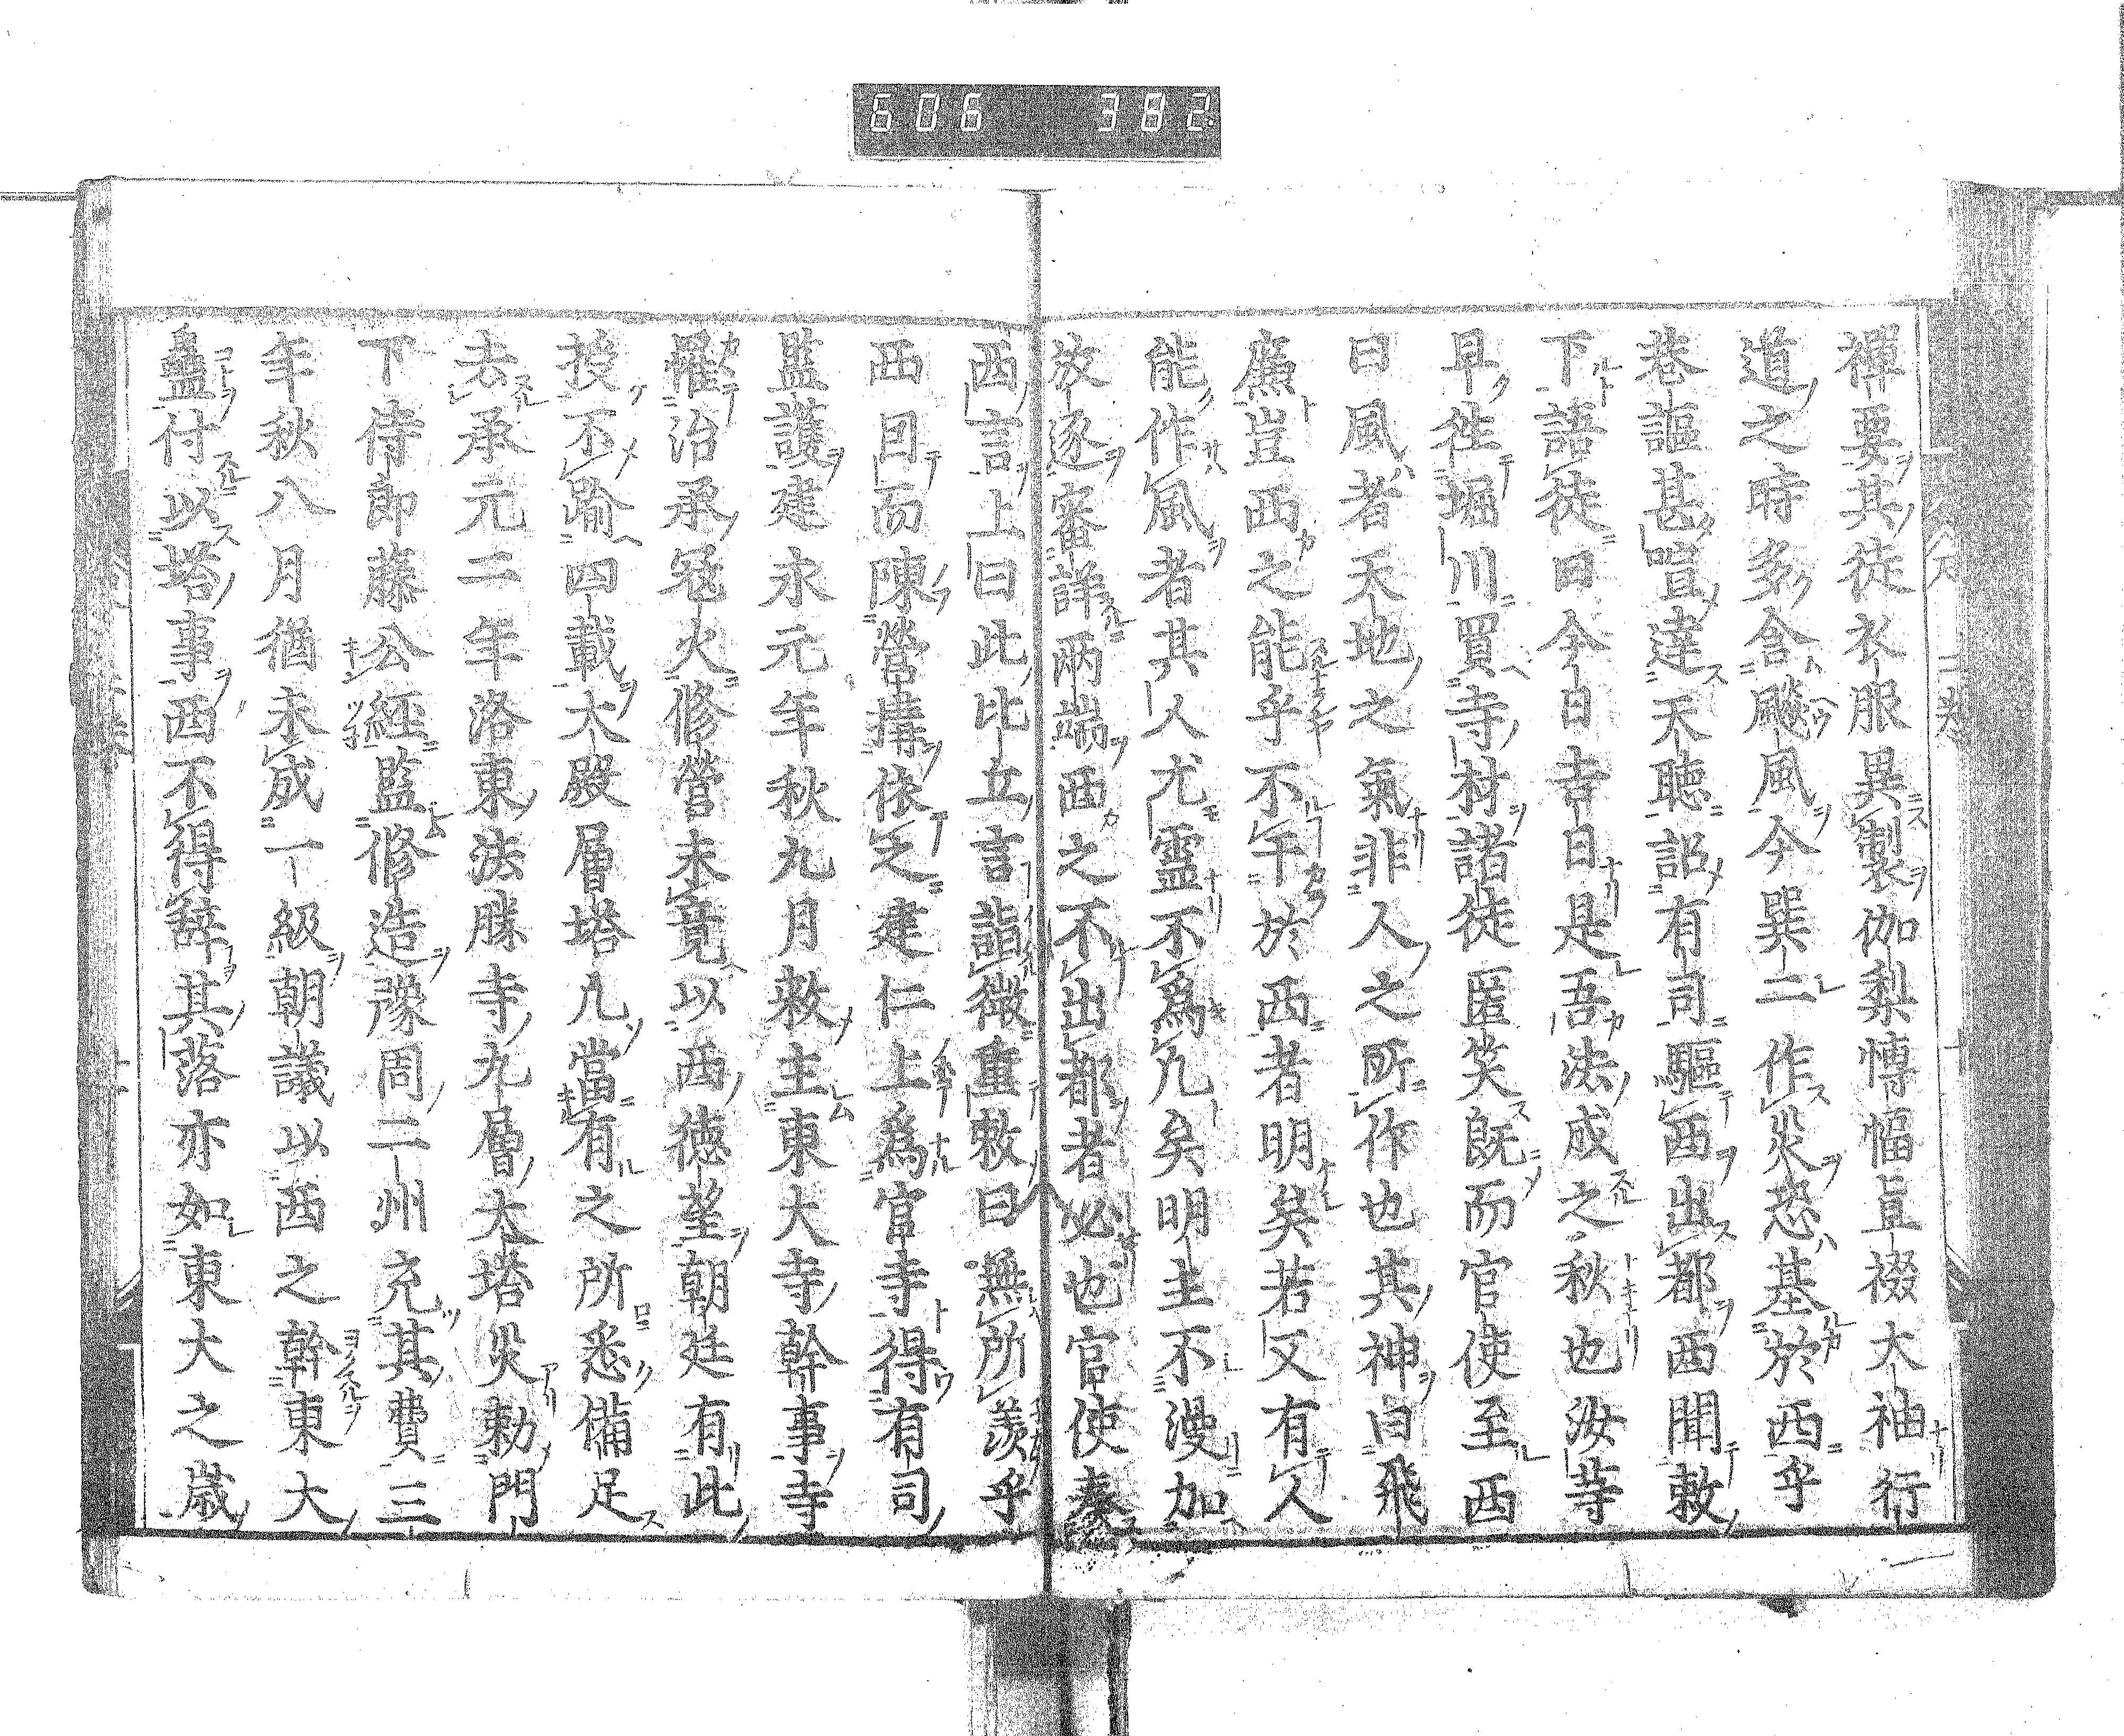 606 382
禪要其徒衣服異製伽梨愽幅直裰大袖行
道之時多含飈風今巽二作灾恐基於西乎
巷謳甚喧達天聽詔有司驅西出都西聞敕
下語徒曰今日吉日是吾法成之秋也汝等
早徃堀川買寺材諸徒匿笑既而官使至西
曰風者天地之氣非人之所作也其神曰飛
廉豈西之能乎不干於西者明矣若又有人
能作風者其人尤靈不爲凢矣明主不漫加
放逐審詳兩端西之不出都者必也官使奏
西言上曰此比丘言詣微重敕曰無所羨乎
西曰而陳營搆依之建仁上爲官寺得有司
監護建永元年秋九月敕主東大寺幹事寺
罹治承冦火修營未竟以西德望朝廷有此
授不踰四載大殿層塔凢當有之所悉備足
去承元二年洛東法勝寺九層大塔災勅門
下侍郎藤公經監修造豫周二州充其費三
年秋八月猶未成一級朝議以西之幹東大
蠱付以塔事西不得辭其落亦如東大之歳